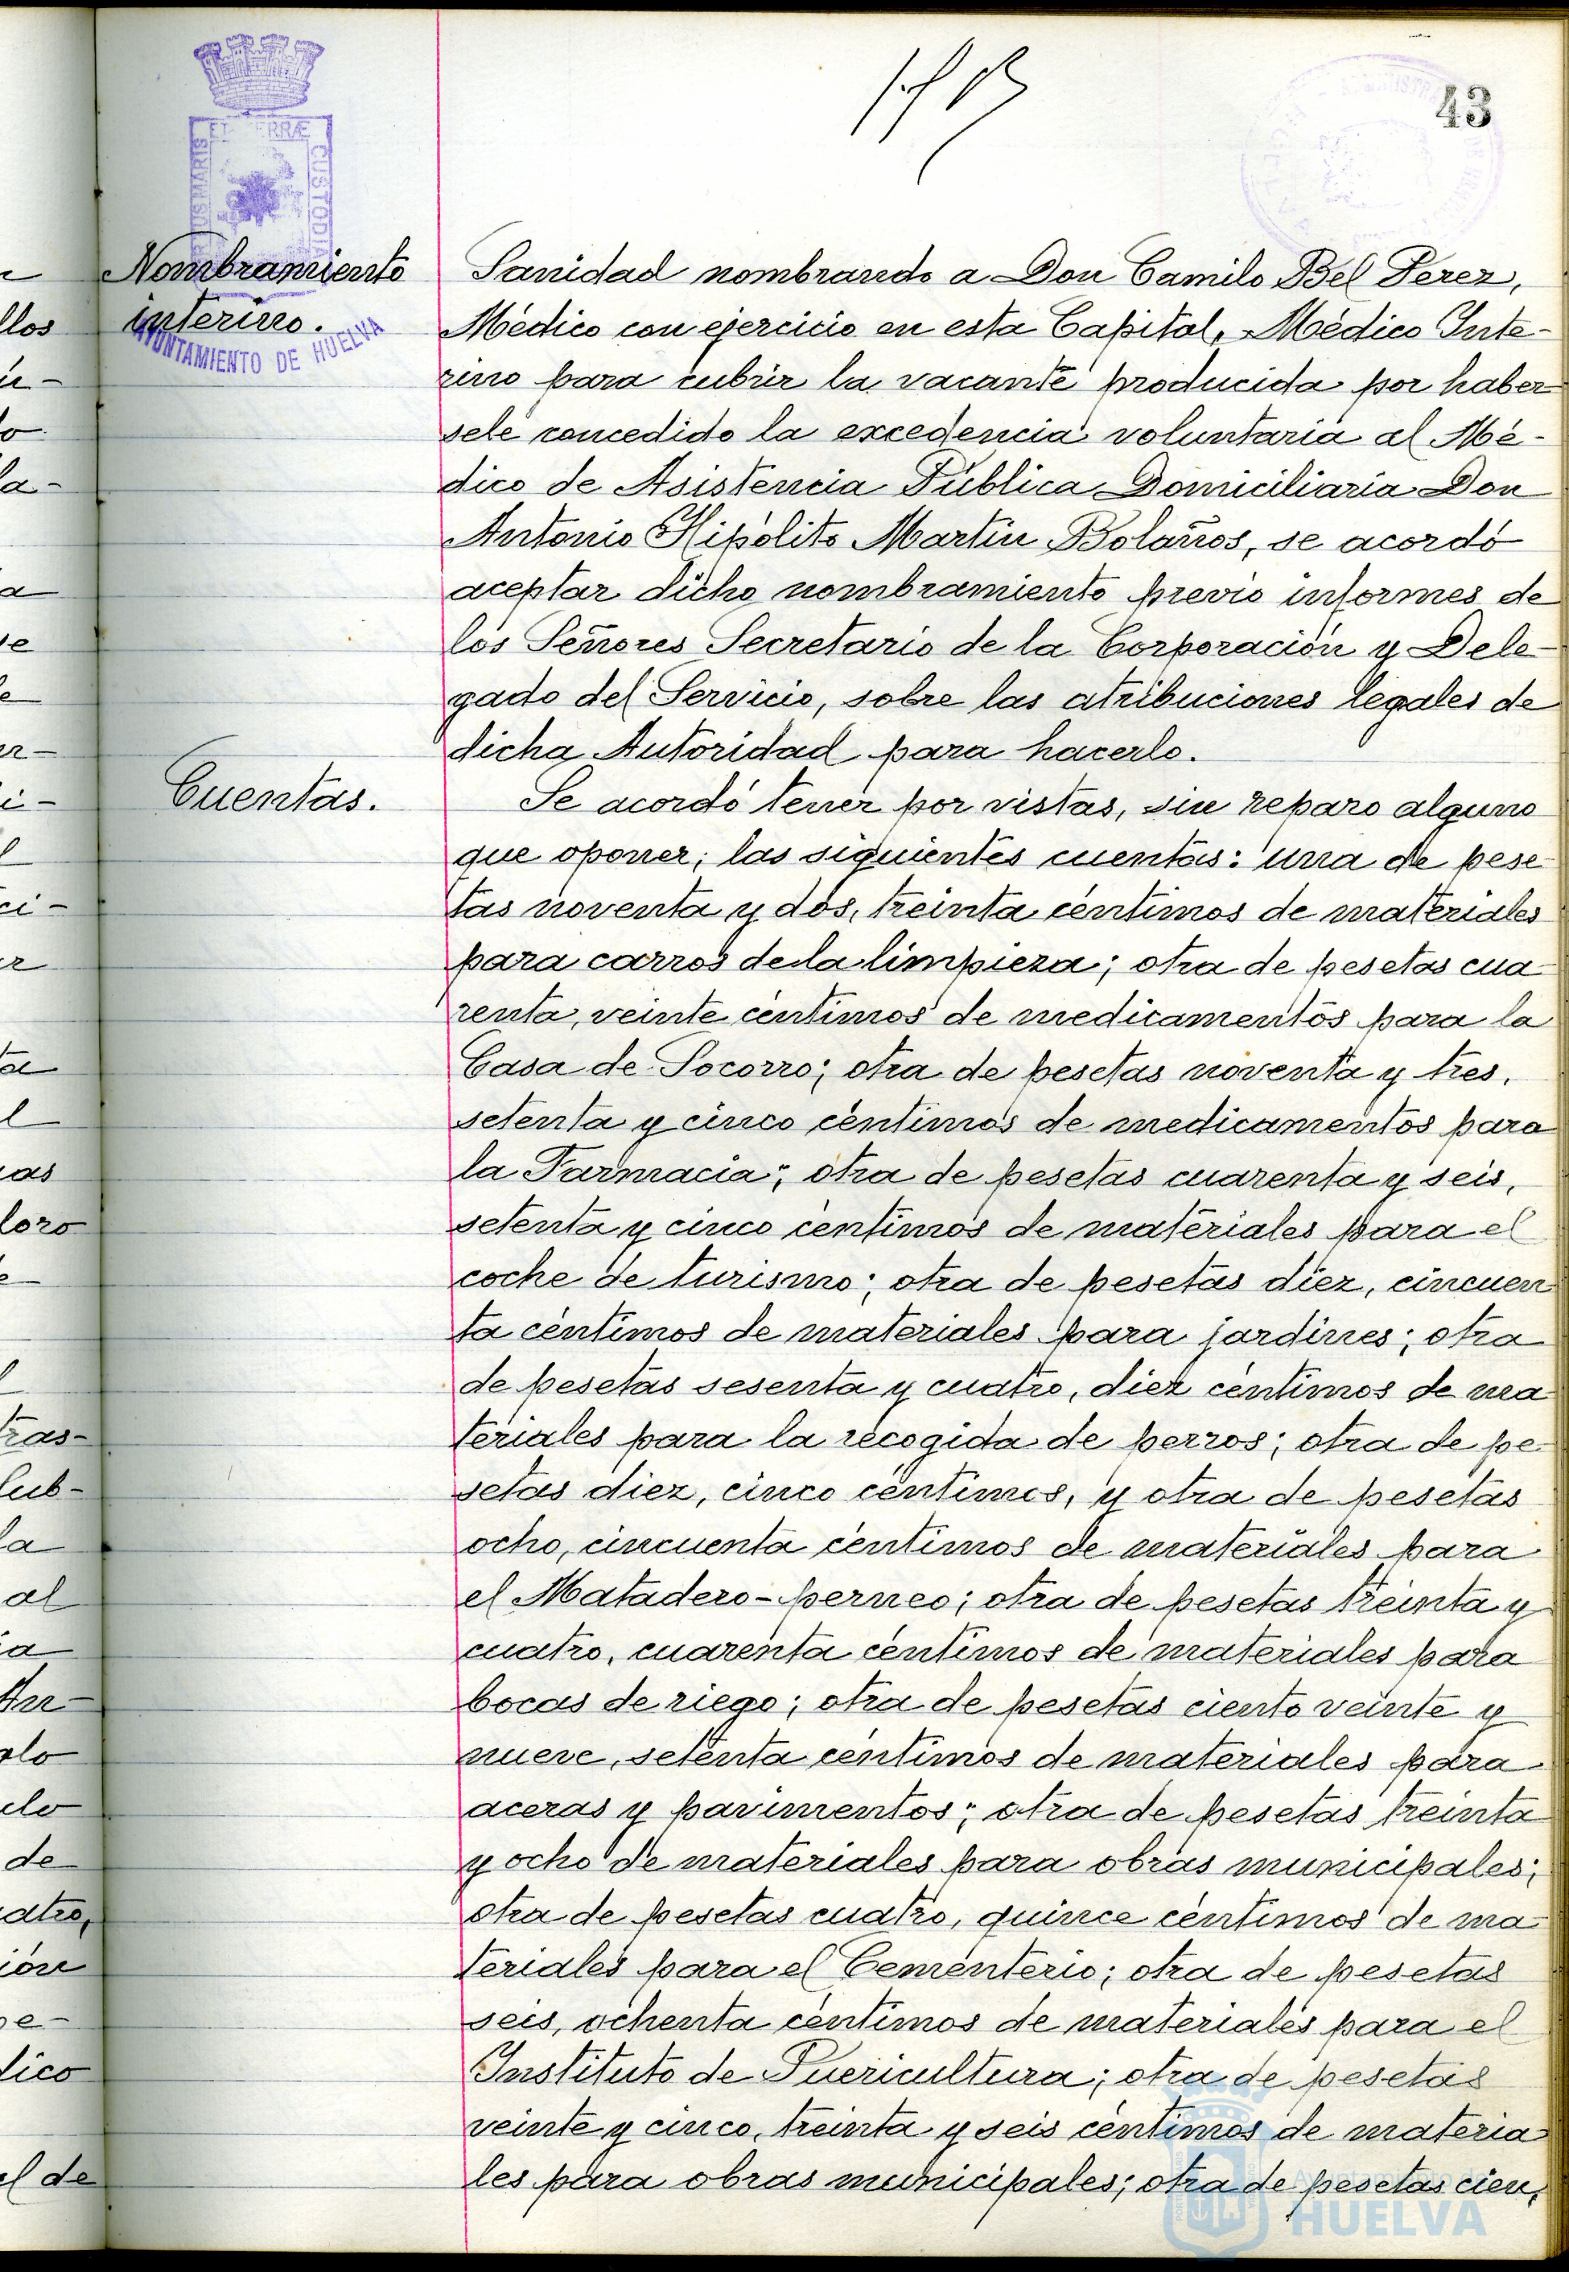 43
ET TERRÆ
US MARIS
CUSTODIA
AYUNTAMIENTO DE HUELVA
Nombramiento
interino.
Sanidad nombrando a Don Camilo Bel Perez,
Médico con ejercicio en esta Capital, Médico Inte-
rino para cubrir la vacante producida por haber
sele concedido la excedencia voluntaria al Mé-
dico de Asistencia Pública Domiciliaria Don
Antonio Hipólito Martin Bolaños, se acordó
aceptar dicho nombramiento previo informes de
los Señores Secretario de la Corporación y Dele-
gado del Servicio, sobre las atribuciones legales de
dicha Autoridad para hacerlo.
Cuentas.
Se acordó tener por vistas, sin reparo alguno
que oponer, las siguientes cuentas: una de pese
tas noventa y dos, treinta céntimos de materiales
para carros de la limpieza; otra de pesetas cua
renta, veinte céntimos de medicamentos para la
Casa de Socorro; otra de pesetas noventa y tres,
setenta y cinco céntimos de medicamentos para
la Farmacia; otra de pesetas cuarenta y seis,
setenta y cinco centimos de materiales para el
coche de turismo; otra de pesetas diez, cincuen
ta céntimos de materiales para jardines; otra
de pesetas sesenta y cuatro, diez céntimos de ma
teriales para la recogida de perros; otra de pe-
setas diez, cinco céntimos, y otra de pesetas
ocho, cincuenta céntimos de materiales para
el Matadero-perneo; otra de pesetas treinta y
cuatro, cuarenta céntimos de materiales para
bocas de riego; otra de pesetas ciento veinte y
nueve, setenta céntimos de materiales para
aceras y pavimentos; otra de pesetas treinta
y ocho de materiales para obras municipales;
otra de pesetas cuatro, quince céntimos de ma
teriales para el Cementerio; otra de pesetas
seis, ochenta céntimos de materiales para el
Instituto de Puericultura; otra de pesetas
veinte y cinco, treinta y seis céntimos de materia
les para obras municipales; otra de pesetas cien,
HUELVA